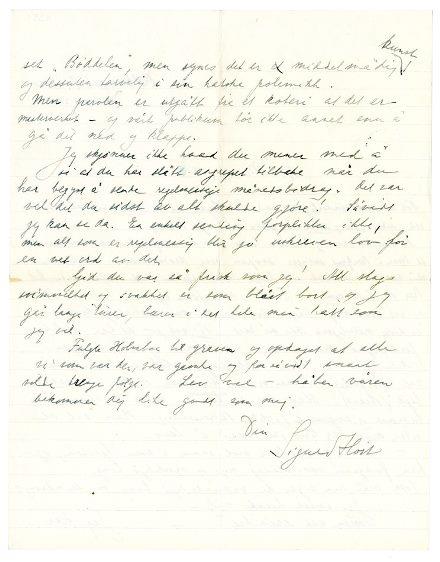 kunst
set "Bøddelen", men synes det er et middelmådig
og dessuten tarvelig i sin hatske polemikk.
Men parolen er utgått fra et koteri at det er
mesterverket - og vårt publikum tør ikke annet enn å
gå dit ned og klappe.
Jeg skjønner ikke hvad du mener med å
si at du har slått angrepet tilbake når du
har begynt å sende regelmessige månedsbidrag. Det var
vel det du sidst av alt skulde gjøre! Såvidt
jeg kan se da. En enkelt sending forplikter ikke,
men alt som er regelmessig blir jo uskreven lov før
en vet ord av det.
Gid du var så frisk som jeg! All slags
svimmelhet og svakhet er som blåst bort og jeg
går lange turer, i det hele tatt som
jeg vil.
Fulgte til graven og opdaget at alle
vi som var der, var gamle og forsåvidt snart
vilde følge. Lev vel - håber våren
bekommer dig like godt som mig.
Din
Sigurd Høst